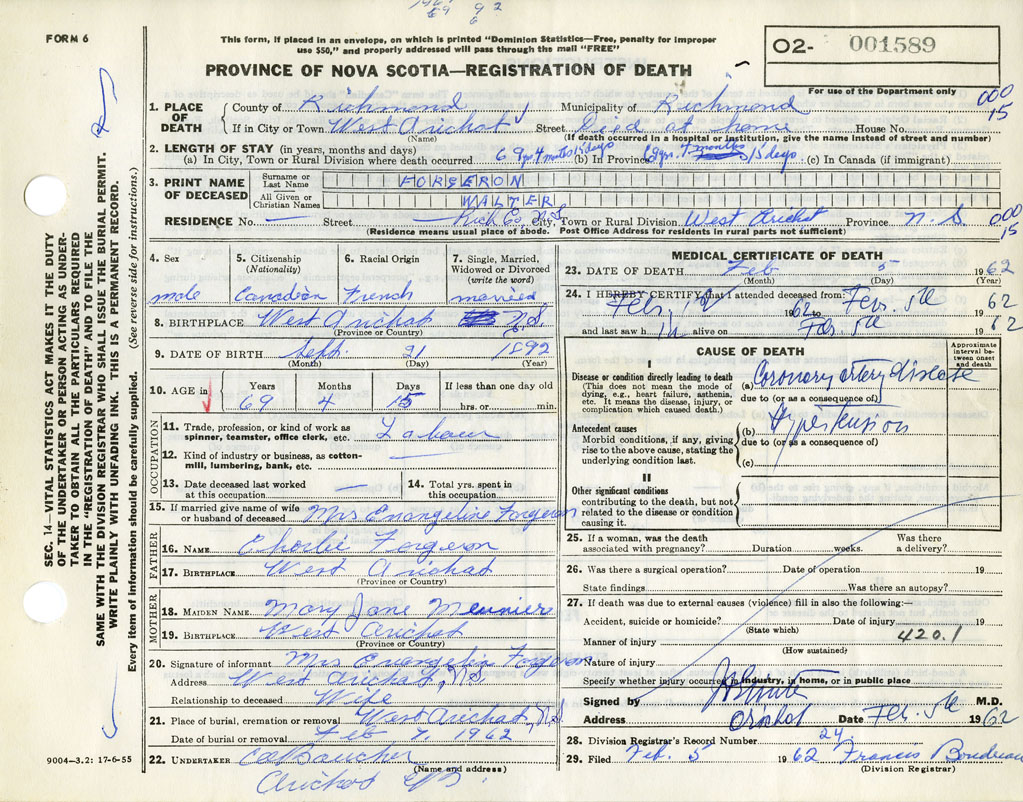 FORM 6
This form, if placed in an envelope, on which is printed "Dominion Statistics—Free, penalty for improper
use $50," and properly addressed will pass through the mail "FREE"
PROVINCE OF NOVA SCOTIA—REGISTRATION OF DEATH
02- 001589
For use of the Department only
000
15
1. PLACE OF DEATH
County of Richmond Municipality of Richmond
If in City or Town West Arichat Street Died at home House No.
(Name) (If death occurred in a hospital or institution, give the name instead of street and number)
2. LENGTH OF STAY (in years, months and days)
(a) In City, Town or Rural Division where death occurred 69 yrs 4 months 15 days (b) In Province 69 yrs 4 months 15 days (c) In Canada (if immigrant)
3. PRINT NAME OF DECEASED
Surname or Last Name FORGERON
All Given or Christian Names WALTER
RESIDENCE No. — Street — Rich Co, N.S City, Town or Rural Division West Arichat Province N. S
000
15
(Residence means usual place of abode. Post Office Address for residents in rural parts not sufficient)
4. Sex 5. Citizenship (Nationality) 6. Racial Origin 7. Single, Married, Widowed or Divorced (write the word)
male Canadian French married
8. BIRTHPLACE West Arichat N.S.
(Province or Country)
9. DATE OF BIRTH Sept. 21 1892
(Month) (Day) (Year)
10. AGE in Years Months Days If less than one day old
69 4 15 hrs. or min.
OCCUPATION
11. Trade, profession, or kind of work as spinner, teamster, office clerk, etc. Labour
12. Kind of industry or business, as cotton-mill, lumbering, bank, etc. —
13. Date deceased last worked at this occupation — 14. Total yrs. spent in this occupation
15. If married give name of wife or husband of deceased Mrs Evangeline Forgeron
FATHER
16. NAME Charlie Forgeron
17. BIRTHPLACE West Arichat
(Province or Country)
MOTHER
18. MAIDEN NAME Mary Jane
19. BIRTHPLACE West Arichat
(Province or Country)
20. Signature of informant Mrs Evangelin Forgeron
Address West Arichat, N.S
Relationship to deceased Wife
21. Place of burial, cremation or removal West Arichat, N.S
Date of burial or removal Feb 7, 1962
22. UNDERTAKER
(Name and address)
Arichat
MEDICAL CERTIFICATE OF DEATH
23. DATE OF DEATH Feb 5 1962
(Month) (Day) (Year)
24. I HEREBY CERTIFY that I attended deceased from:
Feb. 1962 to Feb. 5th 1962
and last saw him alive on Feb. 5th 1962
CAUSE OF DEATH
Approximate interval between onset and death
I
Disease or condition directly leading to death
(This does not mean the mode of dying, e.g., heart failure, asthenia, etc. It means the disease, injury, or complication which caused death.)
(a) Coronary artery disease
due to (or as a consequence of)
Antecedent causes
Morbid conditions, if any, giving rise to the above cause, stating the underlying condition last.
(b) Hypertension
due to (or as a consequence of)
(c)
II
Other significant conditions
contributing to the death, but not related to the disease or condition causing it.
25. If a woman, was the death associated with pregnancy? Duration weeks. Was there a delivery?
26. Was there a surgical operation? Date of operation 19
State findings Was there an autopsy?
27. If death was due to external causes (violence) fill in also the following:—
Accident, suicide or homicide? Date of injury 19
(State which)
Manner of injury 420.1
(How sustained)
Nature of injury
Specify whether injury occurred in industry, in home, or in public place
Signed by M.D.
Address Arichat Date Feb. 5th 1962
28. Division Registrar's Record Number 24.
29. Filed Feb. 5 1962 Francis Boudreau
(Division Registrar)
SEC. 14—VITAL STATISTICS ACT MAKES IT THE DUTY
OF THE UNDERTAKER OR PERSON ACTING AS UNDER-
TAKER TO OBTAIN ALL THE PARTICULARS REQUIRED
IN THE "REGISTRATION OF DEATH" AND TO FILE THE
SAME WITH THE DIVISION REGISTRAR WHO SHALL ISSUE THE BURIAL PERMIT.
WRITE PLAINLY WITH UNFADING INK. THIS IS A PERMANENT RECORD.
Every item of information should be carefully supplied. (See reverse side for instructions.)
9004-3.2: 17-6-55